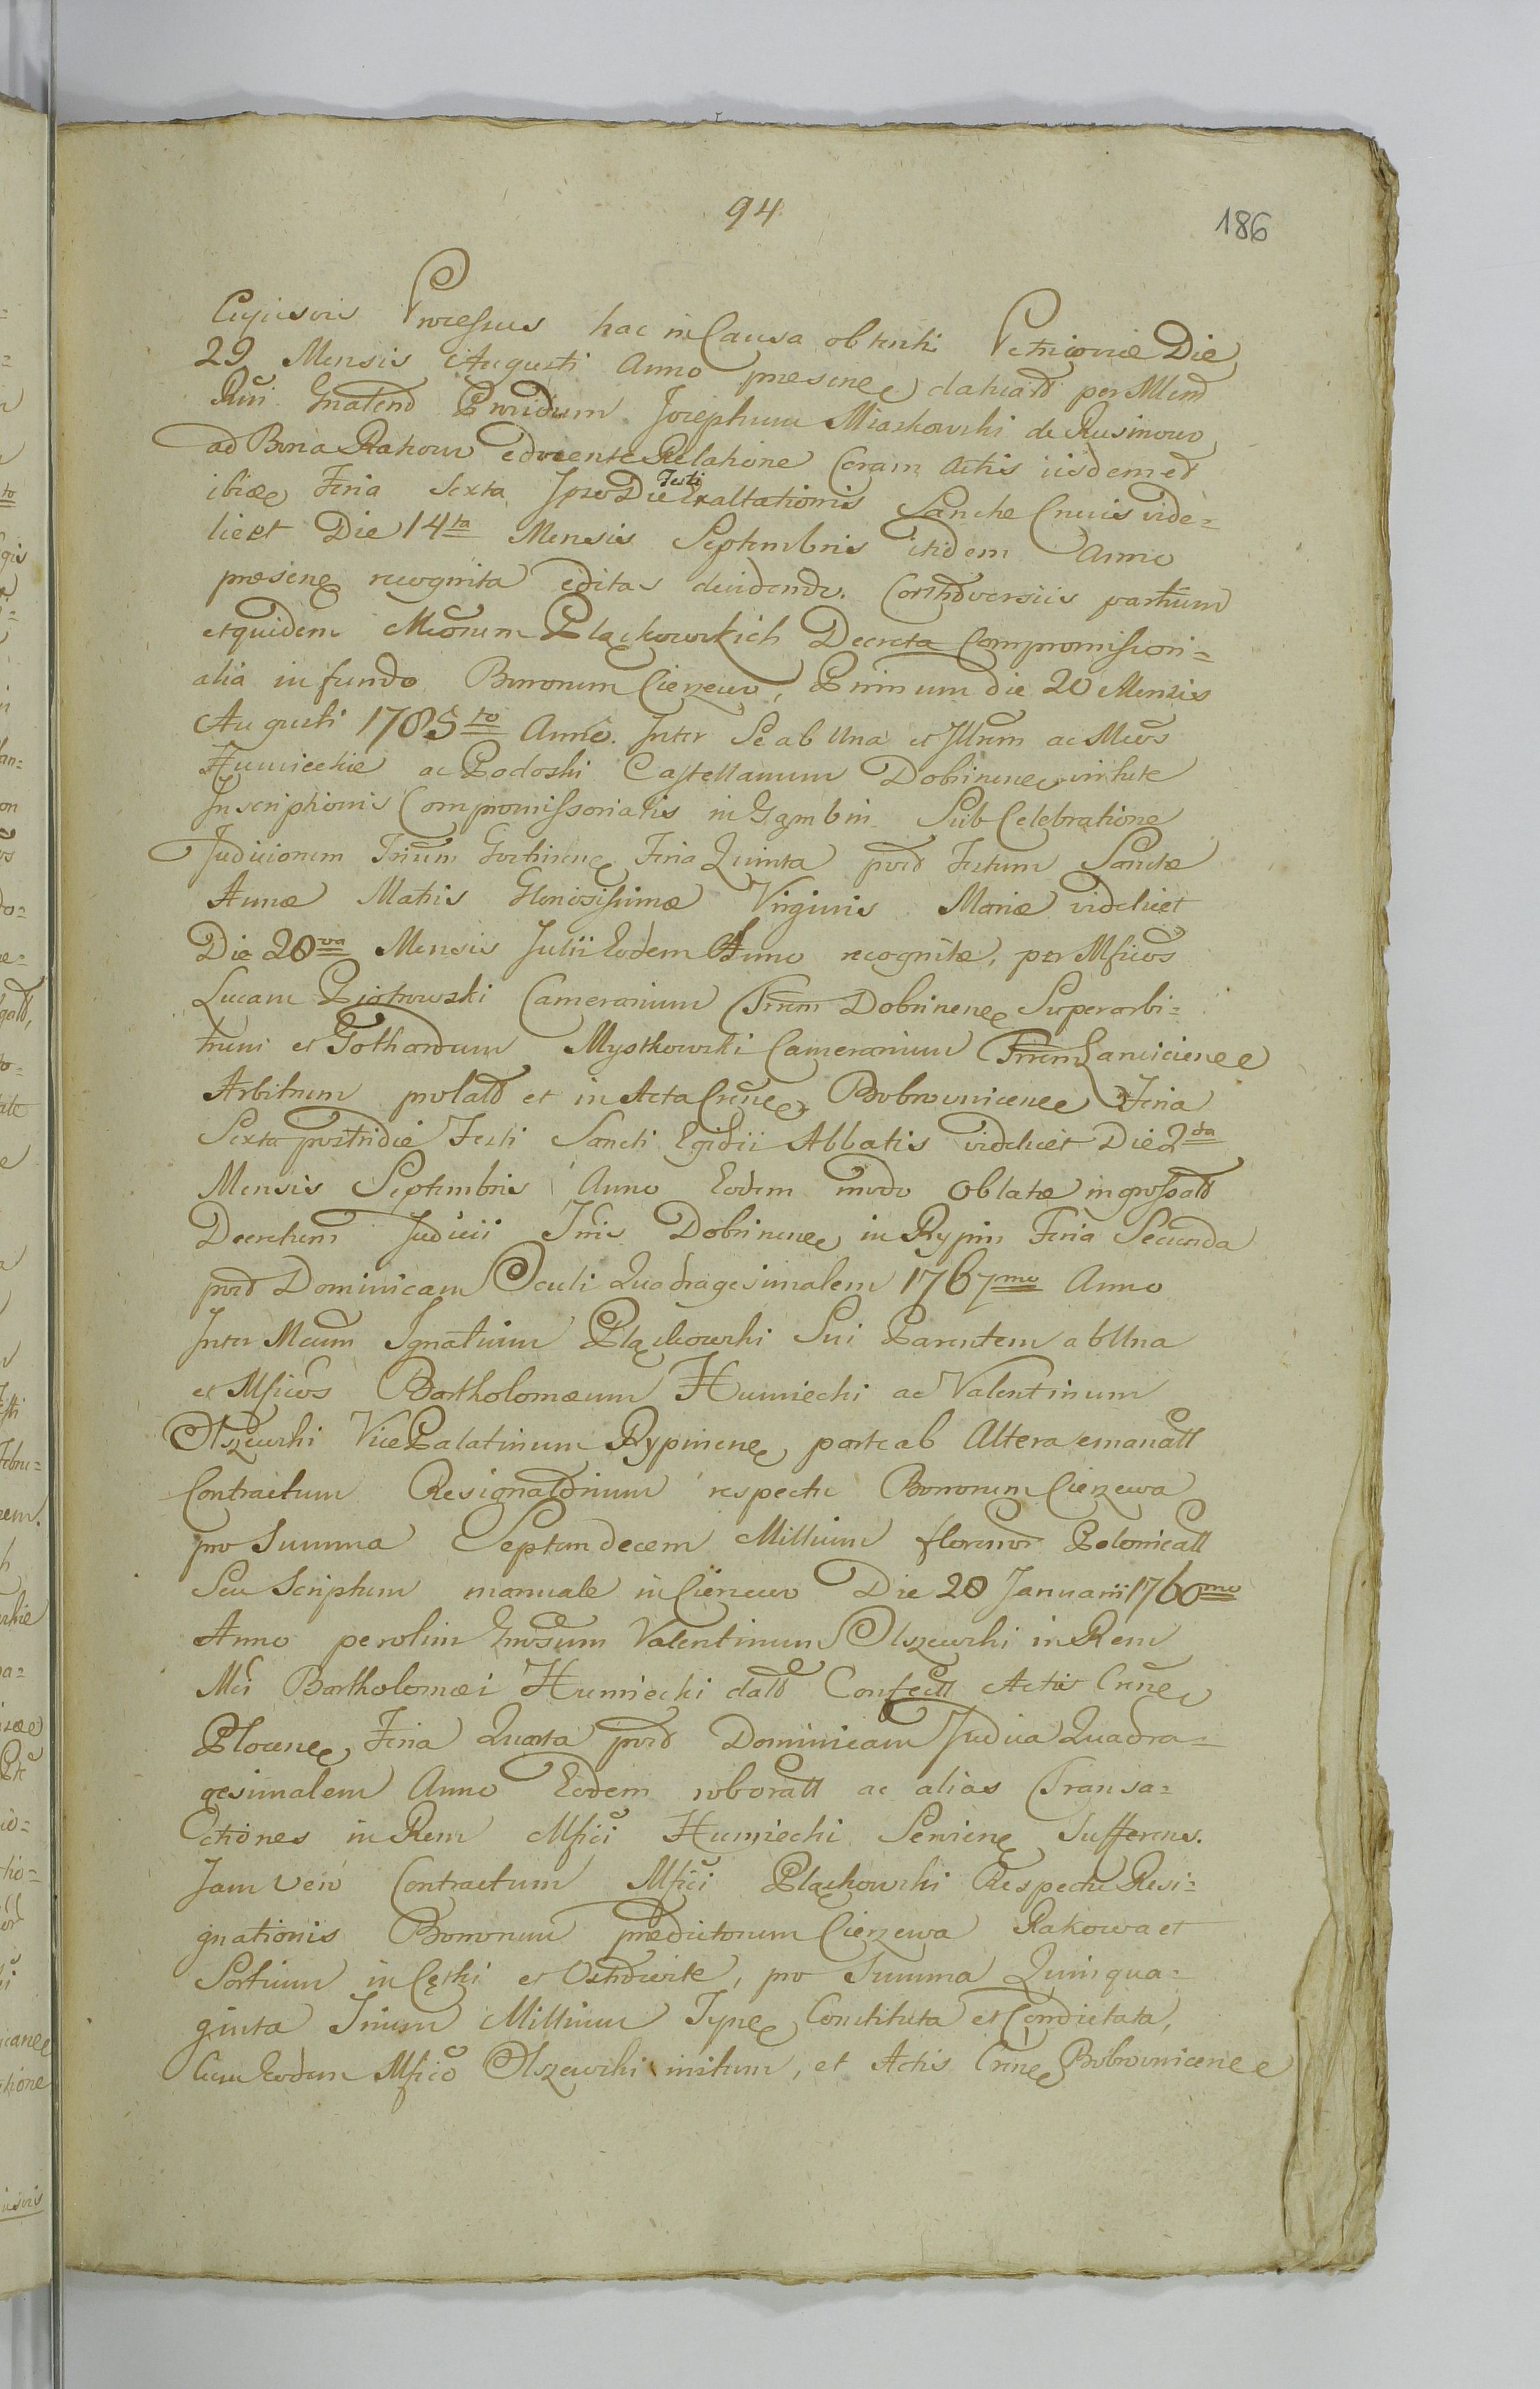 94
186
Cujusvis Processus hac in Causa obtenti Petricoviæ Die
29 Mensis Augusti Anno præsenee datiatd per Mend
Rni Gnalend Providum Josephum Miaskowski de Rusinowo
ad Bona Rakowo edocente Relatione Coram Actis iisdem et
ibiæe Feria Sexta Ipso Die Festi Exaltationis Sanctæ Crucis vide=
licet Die 14ta Mensis Septembris itidem Anno
præsene recognita editas dividendo. Conthoversiis partium
et quidem Mcorum Płąckowskich Decreta Compromission=
alia in fundo Bonorum Cierzewo, Primum die 20 Mensis
Augusti 1785to Anno. Inter Se ab Una et Illrem ac Mcos
Humieckie ac Podoski Castellanum Dobrinenee virtute
Inscriptionis Compromissorialis in Gąmbin Sub Celebratione
Judiciorum Trium Gostinene Feria Quinta post Festum Sanctæ
Annæ Matris Gloriosissimæ Virginis Mariæ videlicet
Die 28va Mensis Julii Eodem Anno recognitæ, per Mficos
Lucam Piotrowski Camerarium Trrem Dobrinenee Superarbi=
trum et Gothardum Mystkowski Camerarium Trrem Lanciciene
Arbitrum prolatd et in Acta Crene Bobrownicenee Feria
Sexta postridie Festi Sancti Egidii Abbatis videlicet Die 2da
Mensis Septembris Anno Eodem modo Oblatæ ingrossatd
Decretum Judicii Trris Dobrinenee in Rypin Feria Secunda
post Dominicam Oculi Quadragesimalem 1767mo Anno
Inter Mcum Ignatium Płąckowski Sui Parentem ab Una
et Mficos Bartholomæum Humiecki ac Valentinum
Olszewski Vice Palatinum Rypinene, parte ab Altera emanatt
Contractum Resignatorium respectu Bonorum Cierzewa
pro Summa Septemdecem Millium florenor Polonicall
Seu Scriptum manuale in Cierzewo Die 28 Januarii 1760mo
Anno per olim Gnosum Valentinum Olszewski in Rem
Mci Bartholomæi Humiecki datd Confectt Actis Crene
Plocene Feria Quarta post Dominicam Judica Quadra=
gesimalem Anno Eodem roboratt ac alias Transa=
ctiones in Rem Mfici Humiecki Serviene Sufferens.
Jam vero Contractum Mfici Płąckowski Respectu Resi=
gnationis Bonorum prædictorum Cierzewa Rakowa et
Sortium in Cętki et Ostrowite, pro Summa Quinqua=
ginta Trium Millium Tynee Constituta et Condictata,
Cum Eodem Mfico Olszewski initum, et Actis Crene Bobrownicenee